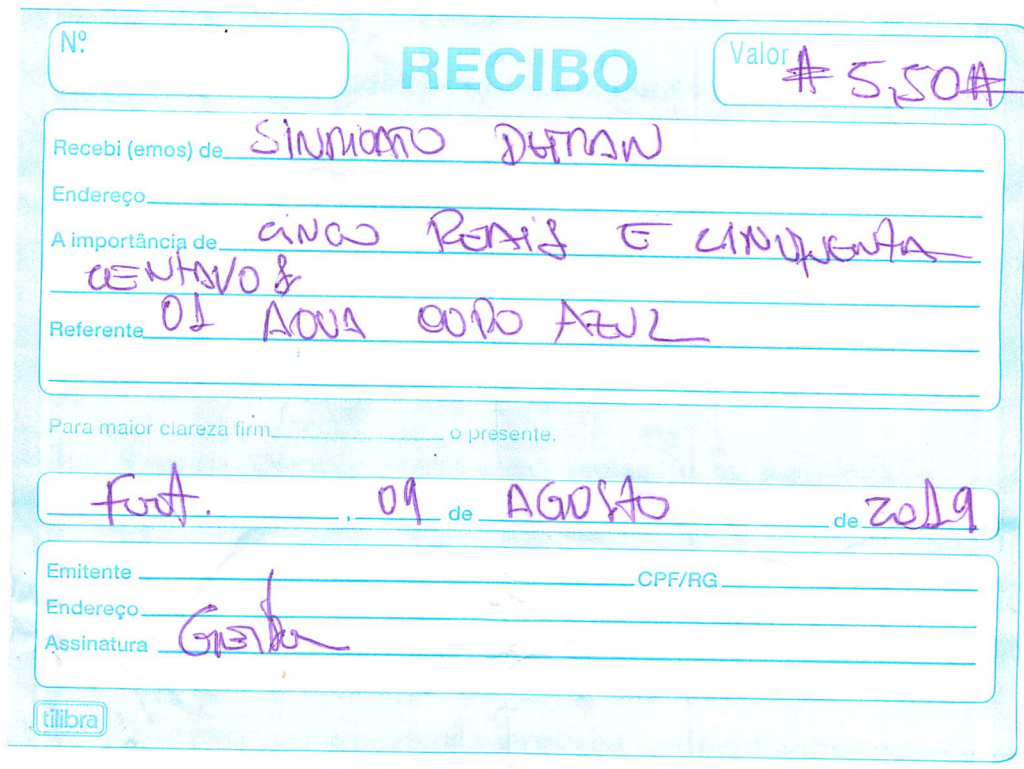 Nº
RECIBO
Valor # 5,50 #
Recebi (emos) de SINDICATO DETRAN
Endereço
A importância de CINCO REAIS E CINQUENTA
CENTAVOS
Referente 01 AGUA COPO AZUL
Para maior clareza firm o presente.
Fort. , 09 de AGOSTO de 2019
Emitente CPF/RG
Endereço
Assinatura
tilibra